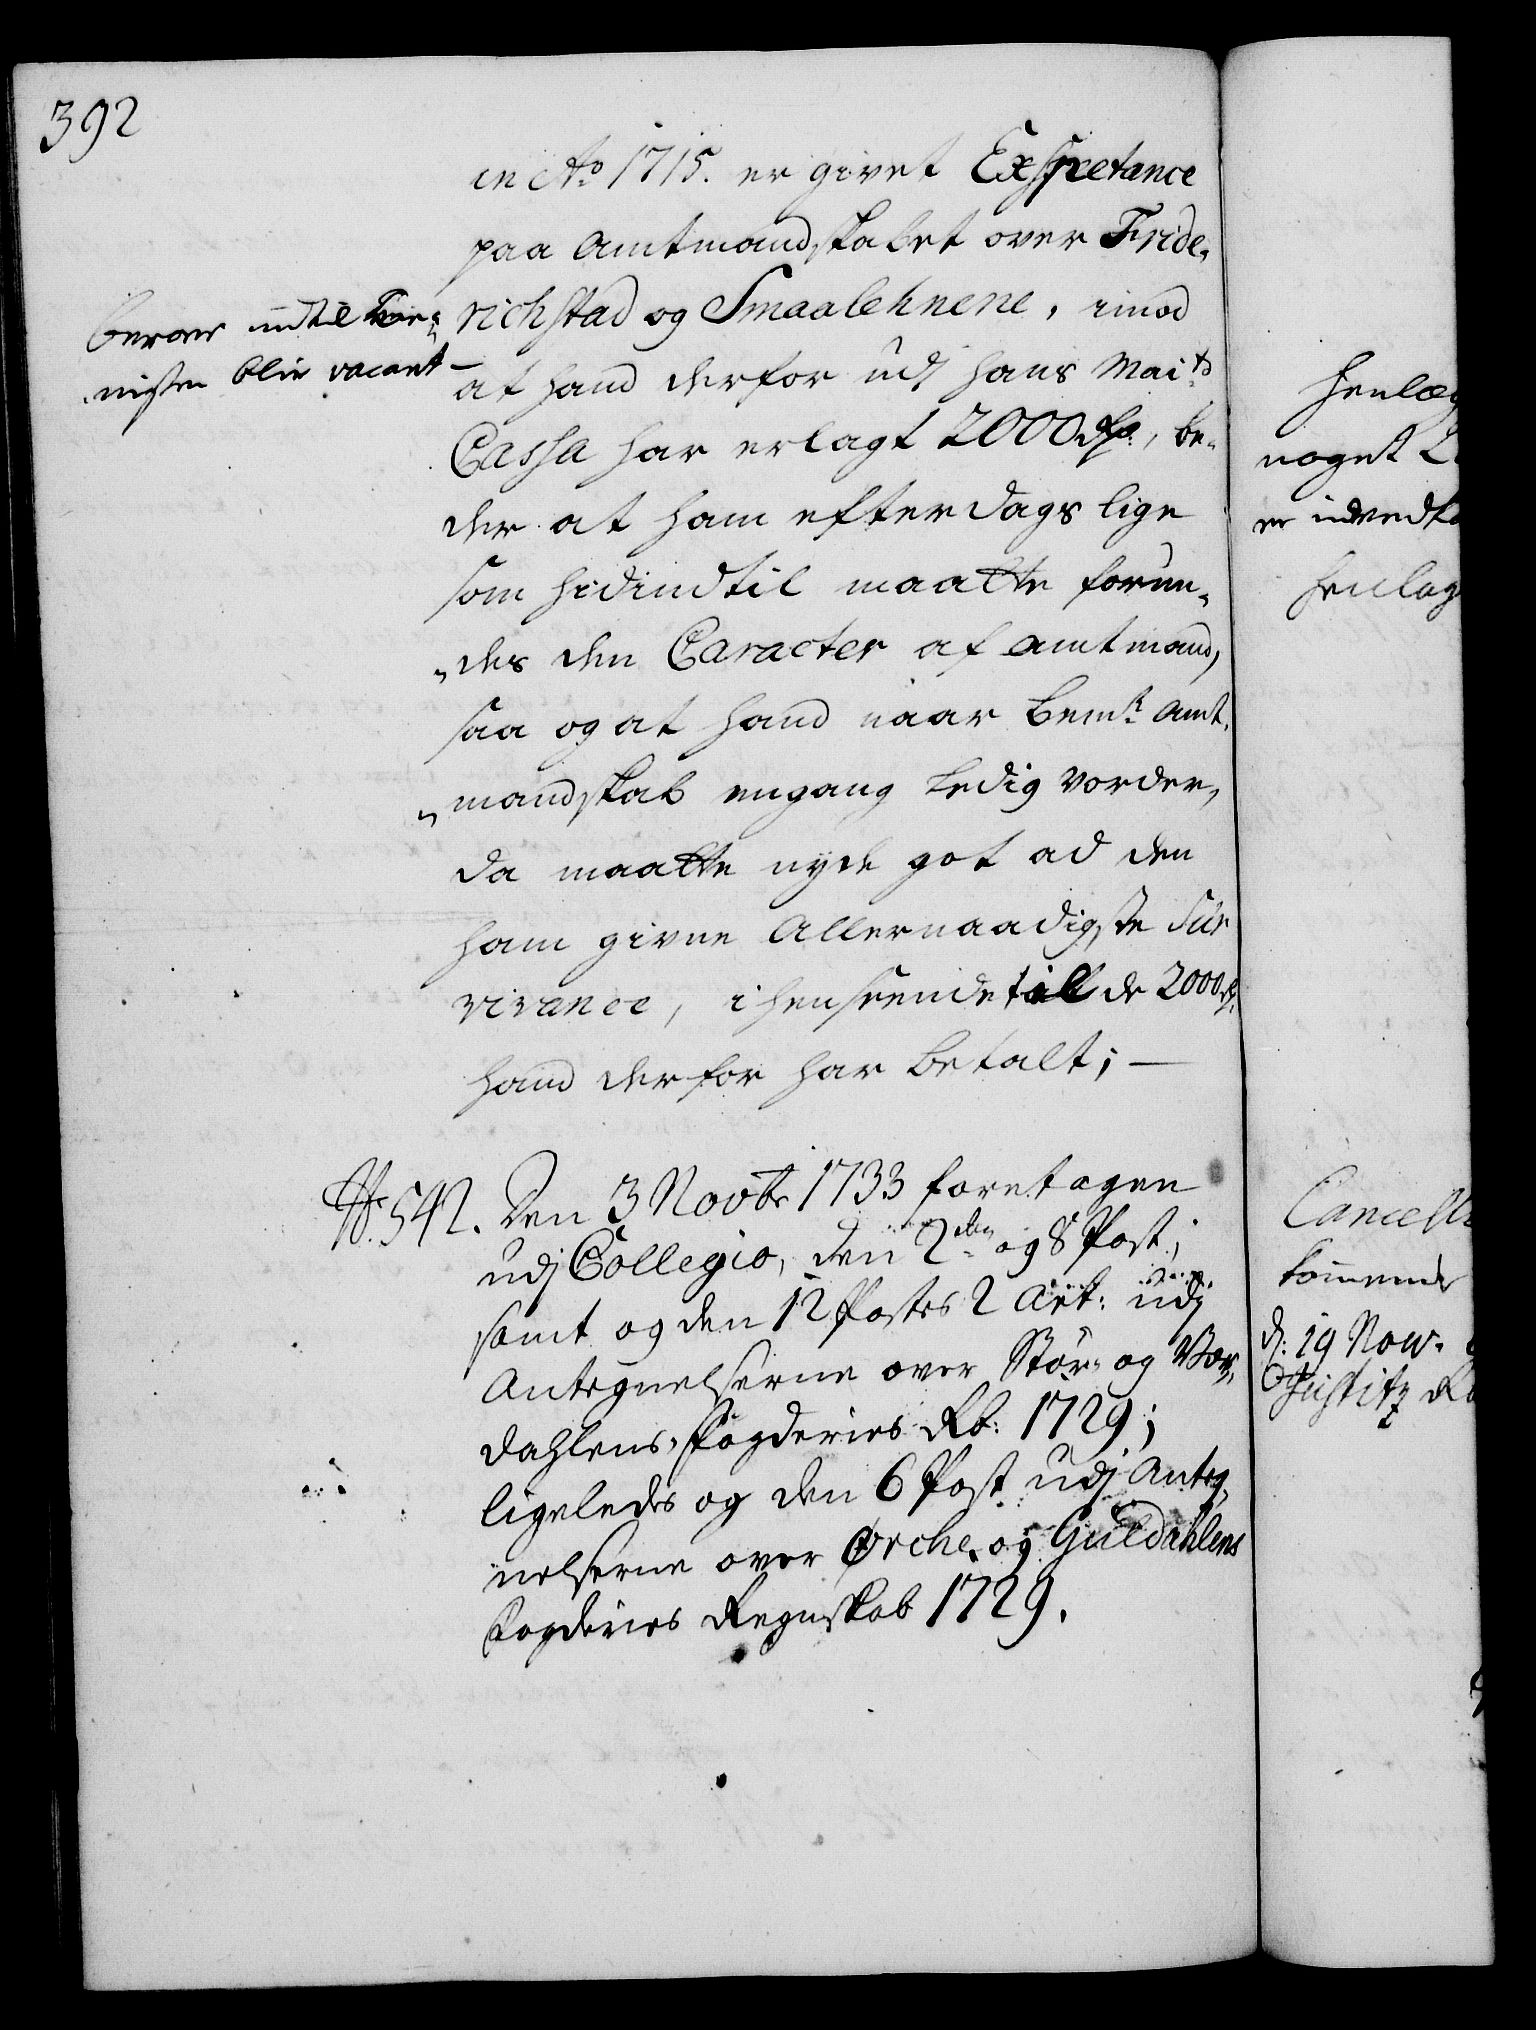 392
in Ao 1715. er givet Exspectance
paa Amtmandskabet over Fride-
richstad og Smaalehnene, imod
at hand derfor udj Hans Maits
Cassa har erlagt 2000 Rd, be-
der at ham efterdags lige
som hidindtil maatte forun-
des den Caracter af Amtmand,
saa og at hand naar bemte Amt-
mandskab engang ledig vorder,
da maatte nyde got ad den
ham givne Allernaadigste Sur
vivance, i henseende til de 2000 Rd
hand derfor har betalt; —
beroer indtil Tie-
nisten blir vacant
No 542. Den 3 Novbr 1733 foretagen
udj Collegio, den 2den og 8 Post,
samt og den 12 Postes 2 Art: udj
Antegnelserne over Stør- og Vær-
dahlens Fogderies Rb: 1729;
ligeledes og den 6 Post udj Anteg-
nelserne over Ørche- og Guldahlens
Fogderies Regnskab 1729.
Henlæg
noget
er indvedk
Henlag
Cancell
kommende
d: 19 Nov.
Justitz R